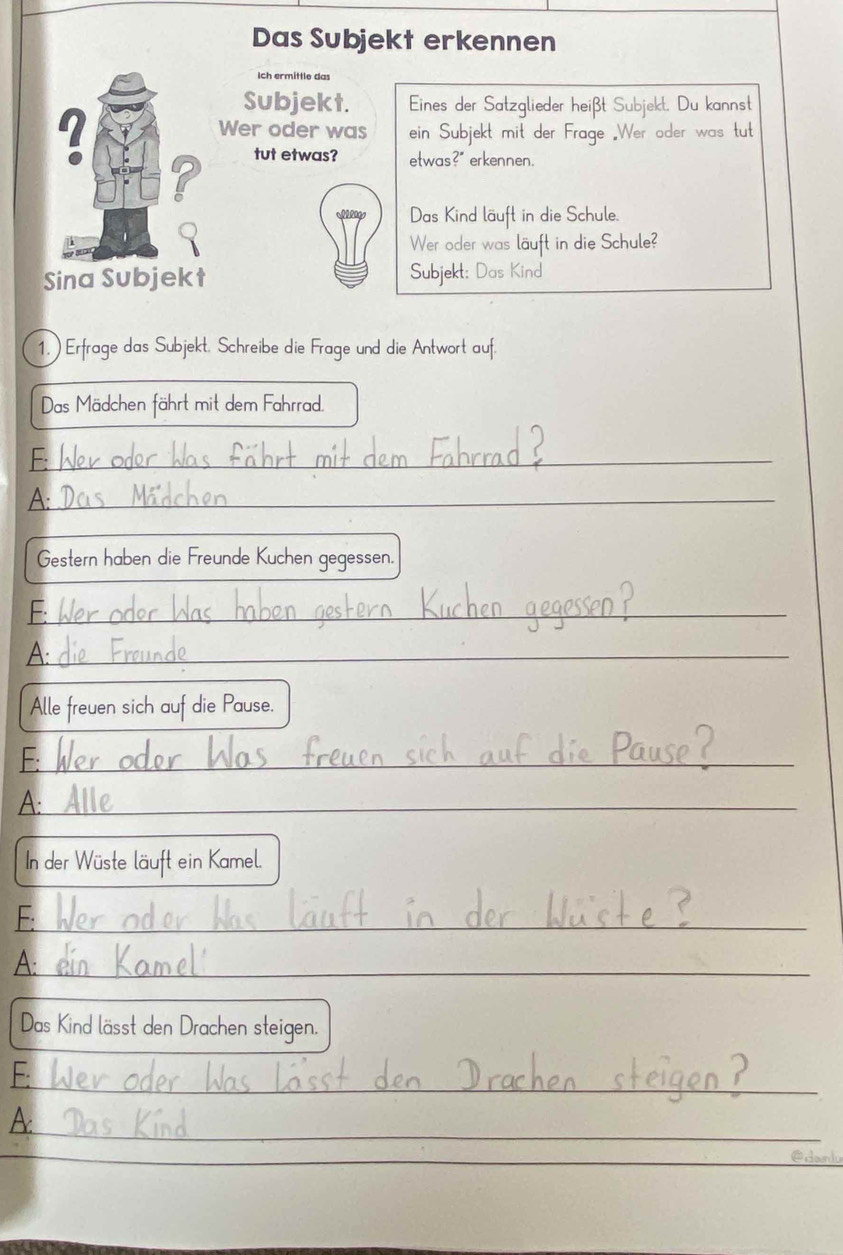 Das Subjekt erkennen
Ich ermittle das
Subjekt.
Wer oder was
tut etwas?
Sina Subjekt
TOP SECRET
Eines der Satzglieder heißt Subjekt. Du kannst
ein Subjekt mit der Frage „Wer oder was tut
etwas?" erkennen.
Das Kind läuft in die Schule.
Wer oder was läuft in die Schule?
Subjekt: Das Kind
1. Erfrage das Subjekt. Schreibe die Frage und die Antwort auf.
Das Mädchen fährt mit dem Fahrrad.
F: Wer oder Was fährt mit dem Fahrrad?
A: Das Mädchen
Gestern haben die Freunde Kuchen gegessen.
F: Wer oder Was haben gestern Kuchen gegessen?
A: die Freunde
Alle freuen sich auf die Pause.
F: Wer oder Was freuen sich auf die Pause?
A: Alle
In der Wüste läuft ein Kamel.
F: Wer oder Was läuft in der Wüste?
A: ein Kamel
Das Kind lässt den Drachen steigen.
F: Wer oder Was lässt den Drachen steigen?
A: Das Kind